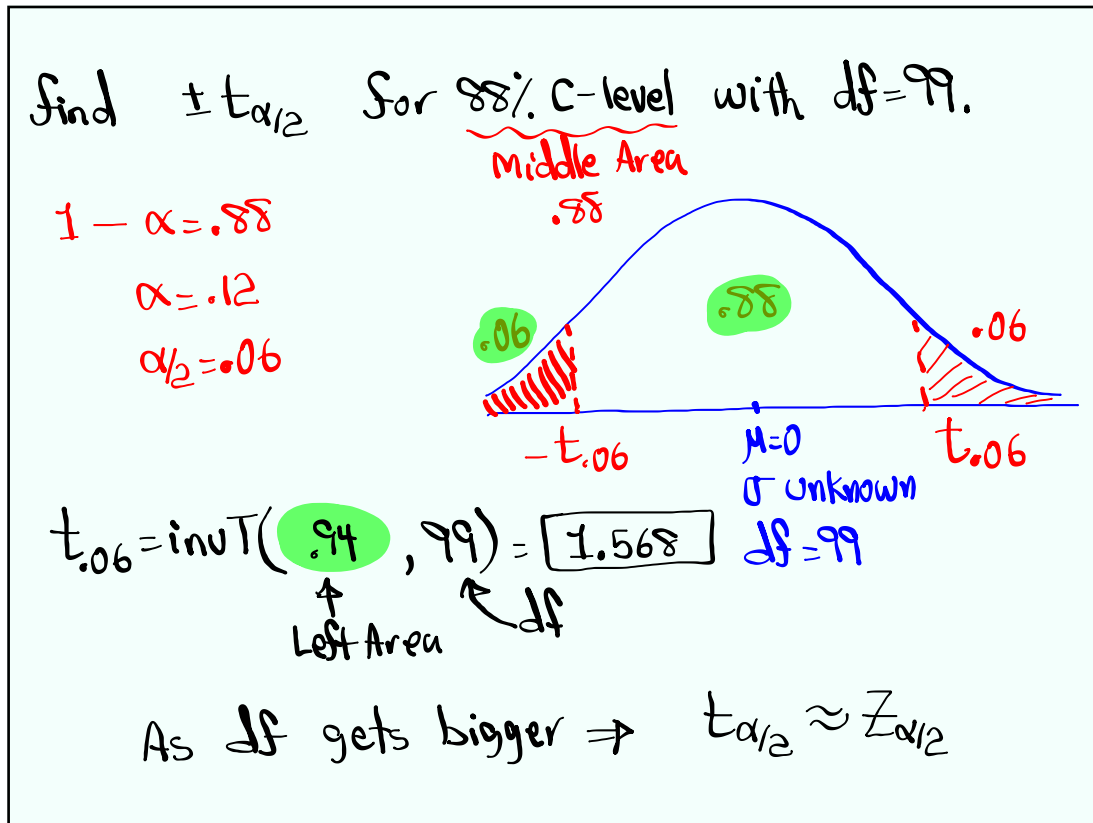 find ± t α/2 for 88% C-level with df=99.
Middle Area
.88
1 - α = .88
α = .12
α/2 = .06
.06
.88
.06
-t.06
μ=0
t.06
σ unknown
df = 99
t.06 = invT( .94 , 99) = 1.568
Left Area
df
As df gets bigger ⇒ tα/2 ≈ Zα/2